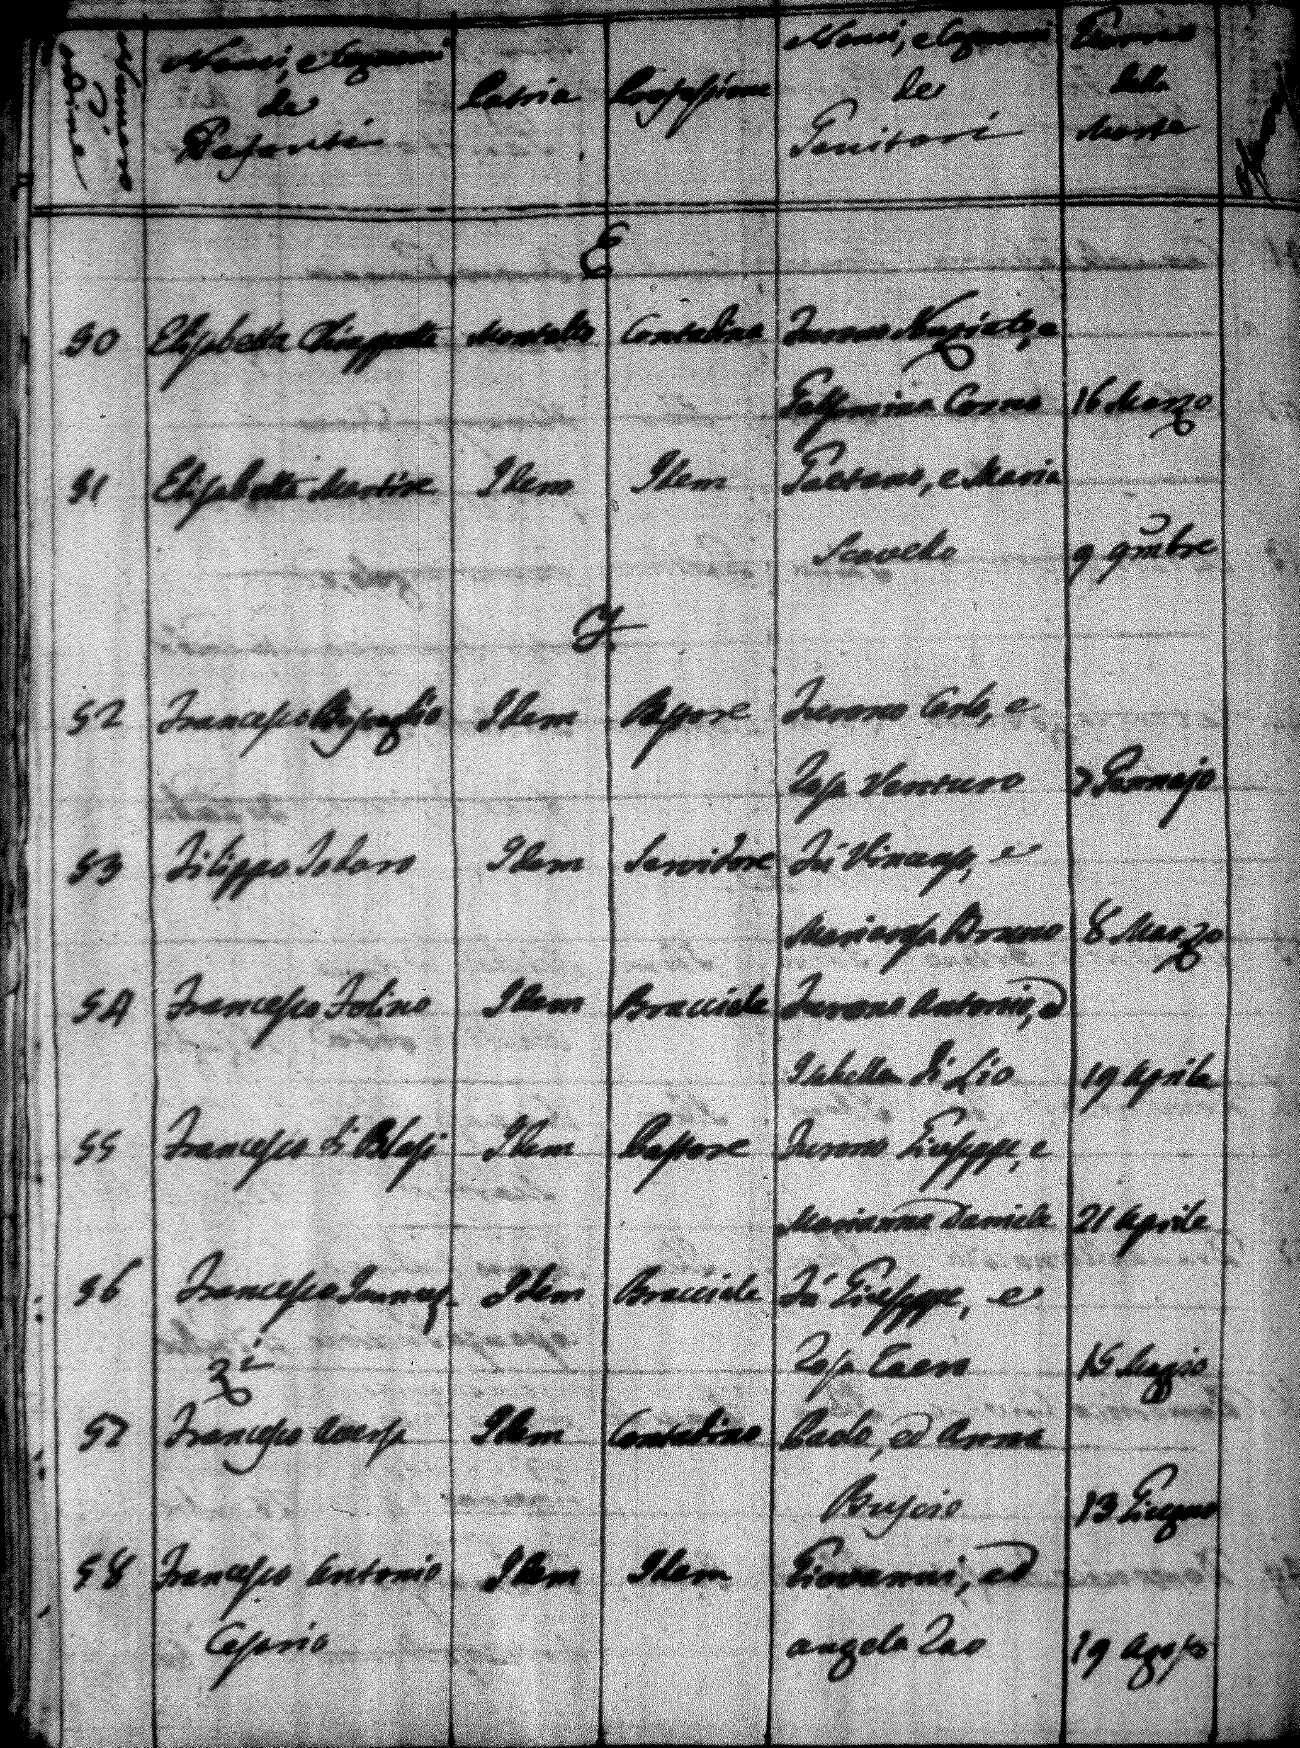 Nomi, e Cognomi de Defonti
Patria
Professione
Nomi, e Cognomi de Genitori
Giorno della Morte
E
50 Elisabetta Chiappetta Montalto Contadina Furono Nunziato, e
Gelsomina Corno 16 Marzo
51 Elisabetta Martire Idem Idem Gaetano, e Maria
Scavello 9 9mbre
F
52 Francesco Idem Pastore Furono Carlo, e
Rosa Venturo 7 Gennajo
53 Filippo Todaro Idem Servidore Fù Vincenzo, e
Mariarosa Bruno 8 Marzo
54 Francesco Folino Idem Bracciale Furono Antonio, ed
Isabella di Lio 19 Aprile
55 Francesco di Blasi Idem Pastore Furono Giuseppe, e
Marianna Daniele 21 Aprile
56 Francesco Iannuz- Idem Bracciale Fù Giuseppe, e
zi Rosa 15 Maggio
57 Francesco Idem Contadino Paolo, ed Anna
Bruscio 13 Giugno
58 Francesco Antonio Idem Idem Giovanni, ed
Cesario Angela Zao 19 Agosto